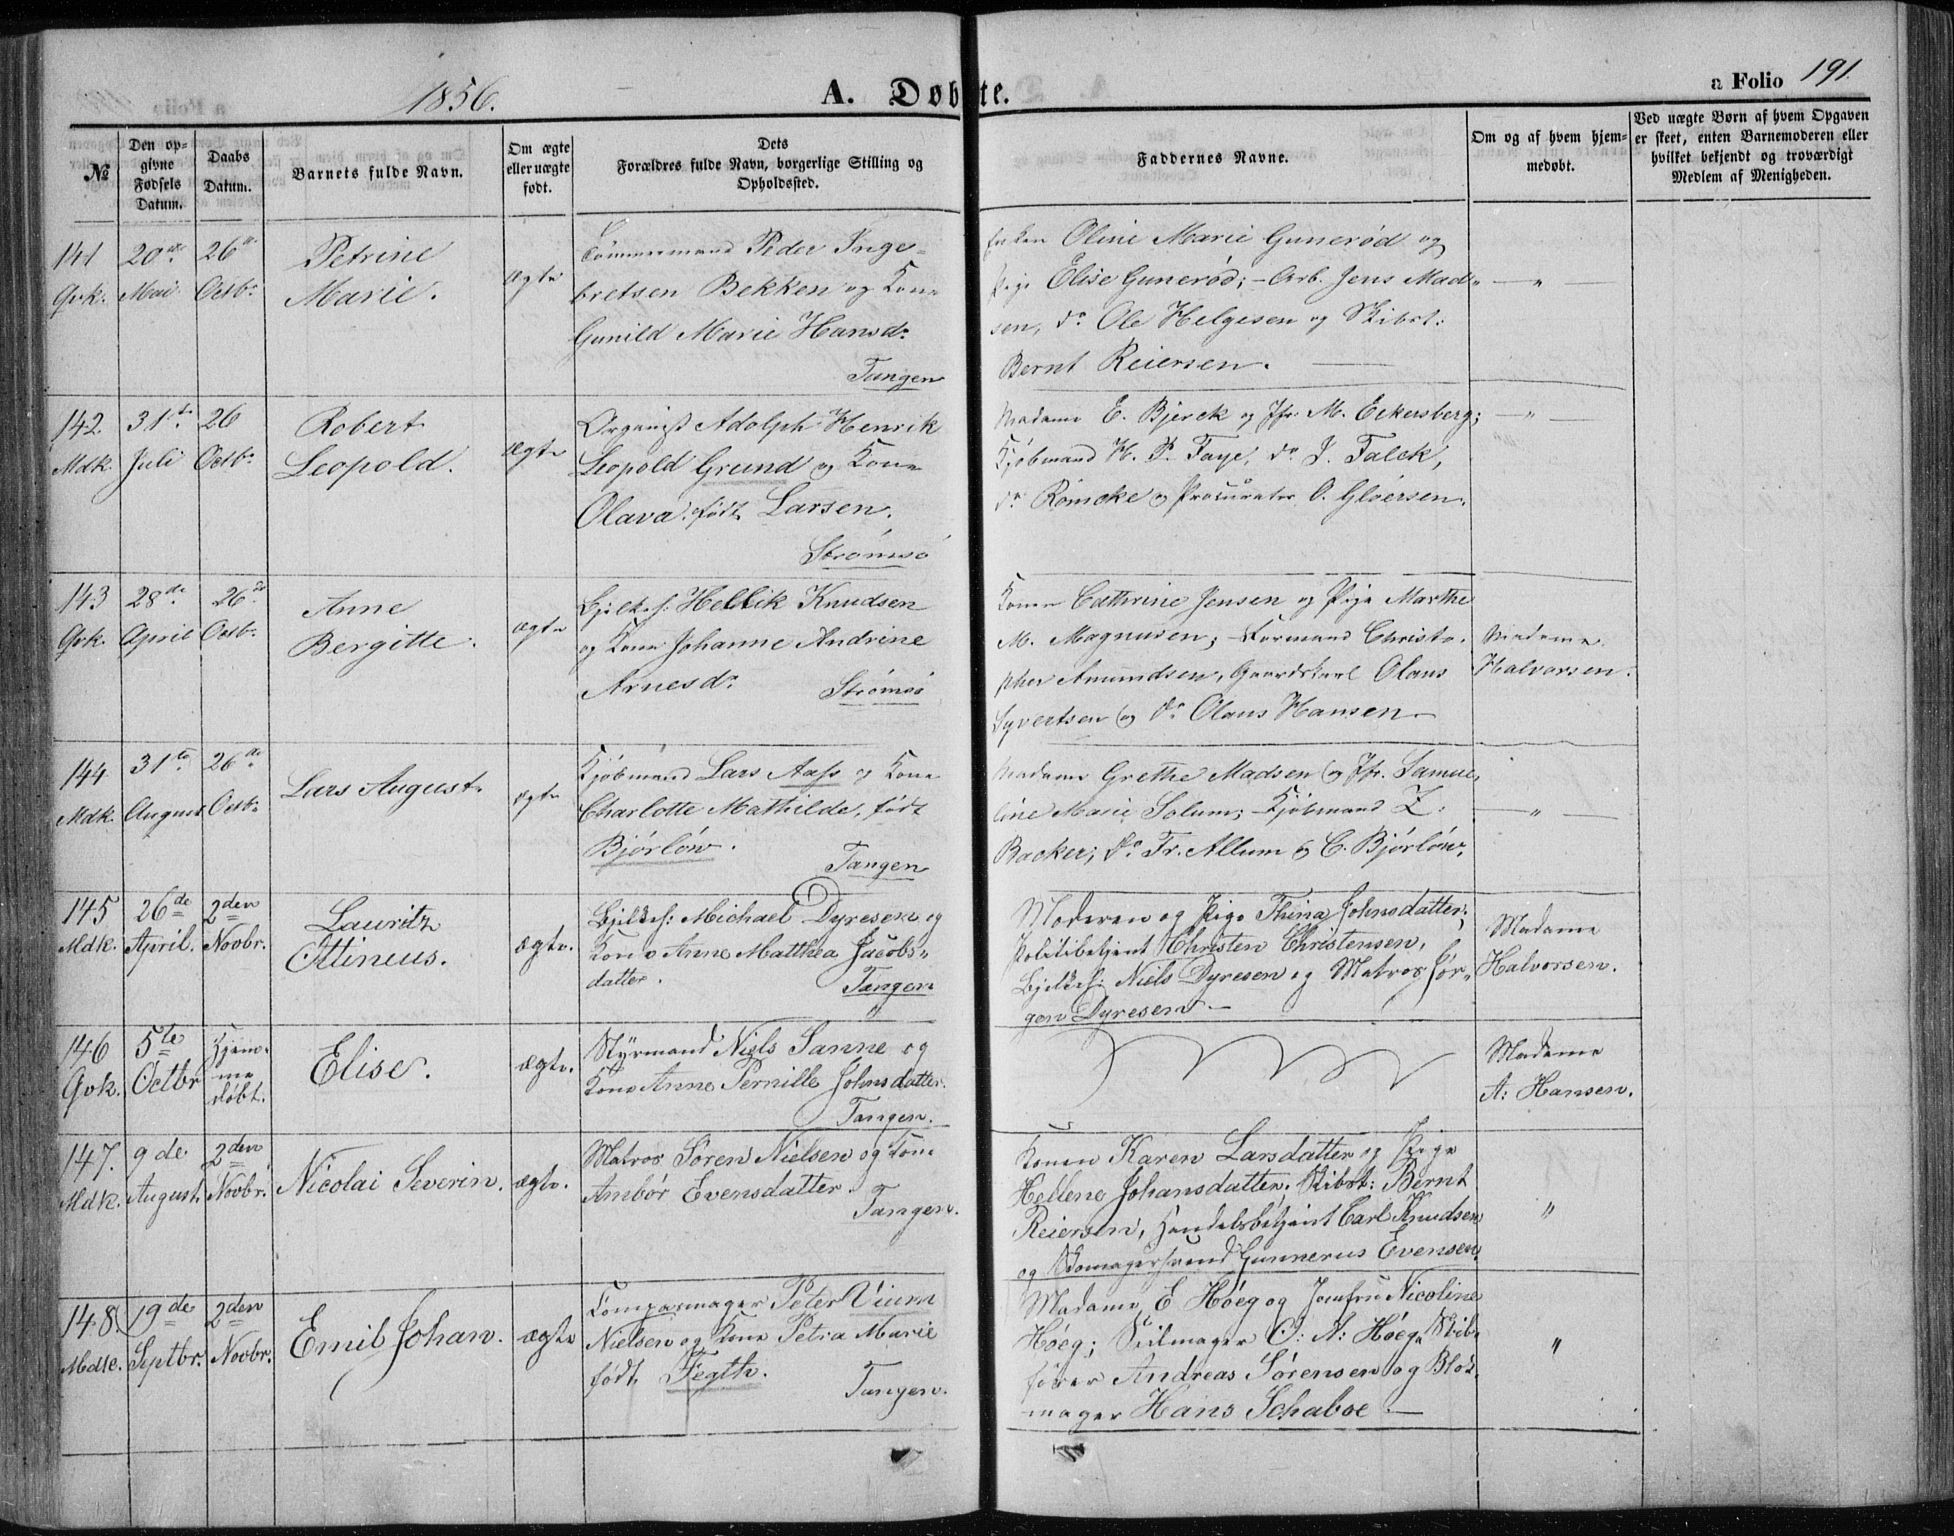 1856.
A. Døbte.
a Folio 191.
№
Den op-
givne
Fødsels
Datum.
Daabs
Datum.
Barnets fulde Navn.
Om ægte
eller uægte
født.
Dets
Forældres fulde Navn, borgerlige Stilling og
Opholdssted.
Faddernes Navne.
Om og af hvem hjem-
medøbt.
Ved uægte Børn af hvem Opgaven
er skeet, enten Barnemoderen eller
hvilket bekjendt og troværdigt
Medlem af Menigheden.
141
Qvk.
20de
Mai
26de
Octbr
Petrine
Marie.
ægte
Tømmermand Peder Inge-
bretsen Bekken og Kone
Gunild Marie Hansdr
Tangen
Enken Oline Marie Gunerød og
Pige Elise Gunerød; - Arb. Jens Mad-
sen, do Ole Helgesen og Skibst:
Bernt Reiersen.
— " —
142
Mdk.
31te
Juli
26
Octbr
Robert
Leopold.
ægte
Organist Adolph Henrik
Leopold Grund og Kone
Olava født Larsen.
Strømsø
Madame E. Bjerck og Jfr. M. Eckersberg;
Kjøbmand H. P. Faye, do J. Falck,
do Römcke og Procurator O. Gløersen.
— " —
143
Qvk.
28de
April
26de
Octbr
Anne
Bergitte.
ægte
Hellik Knudsen
og Kone Johanne Andrine
Arnesdr
Strømsø
Konen Cathrine Jensen og Pige Marthe
M. Magnusen; Formand Christo-
pher Amundsen, Gaardskarl Olaus
Syvertsen og do Olaus Hansen.
Madame
Halvorsen.
144
Mdk.
31te
August
26de
Octbr
Lars August
ægte
Kjøbmand Lars Aass og Kone
Charlotte Mathilde, født
Bjørløw.
Tangen
Madame Grethe Madsen og Jfr. Samue-
line Marie Solum; Kjøbmand Z.
Backer, do Fr. Allum og C. Bjørløw.
— " —
145
Mdk.
26de
April.
2den
Novbr.
Lauritz
Ottinius.
ægte.
Michael Dyresen og
Kone Anne Matthea Jacobs-
datter.
Tangen
Moderen og Pige Thina Johnsdatter;
Politibetjent Christen Christensen,
Niels Dyresen og Matros Jør-
gen Dyresen
Madame
Halvorsen.
146
Qvk.
5te
Octbr
Hjem-
me
døbt.
Elise.
ægte.
Styrmand Niels Sanne og
Kone Anne Pernille Johnsdatter.
Tangen.
Madame
A: Hansen.
147.
Mdk.
9de
August.
2den
Novbr.
Nicolai Severin.
ægte.
Matros Søren Nielsen og Kone
Ambør Evensdatter.
Tangen.
Konen Karen Larsdatter og Pige
Hellene Johansdatter. Skibst: Bernt
Reiersen, Handelsbetjent Carl Knudsen
og Skomagersvend Gunnerus Evensen.
"
148.
Mdk.
19de
Septbr.
2den
Novbr.
Emil Johan.
ægte
Compasmager Peter Vium
Nielsen og Kone Petra Marie
født Fegth.
Tangen.
Madame E Høeg og Jomfru Nicoline
Høeg; Seilmager C: N: Høeg, Skibs-
fører Andreas Sørensen og Blok-
mager Hans Schaboe.
"